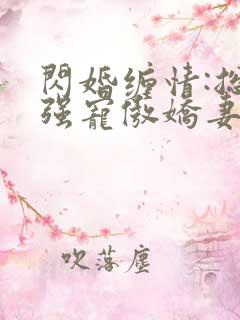 閃婚缠情:总
强寵傲嬌妻
吹落塵